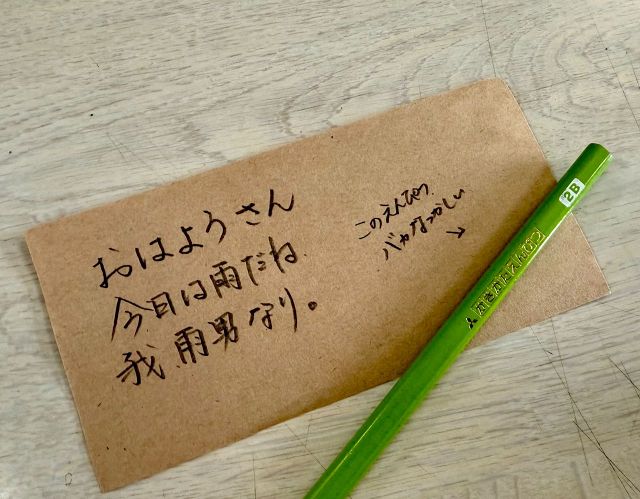 おはようさん
今日は雨だね
我、雨男なり。
このえんぴつ
バカなつかしい
↓
2B
かきかたえんぴつ